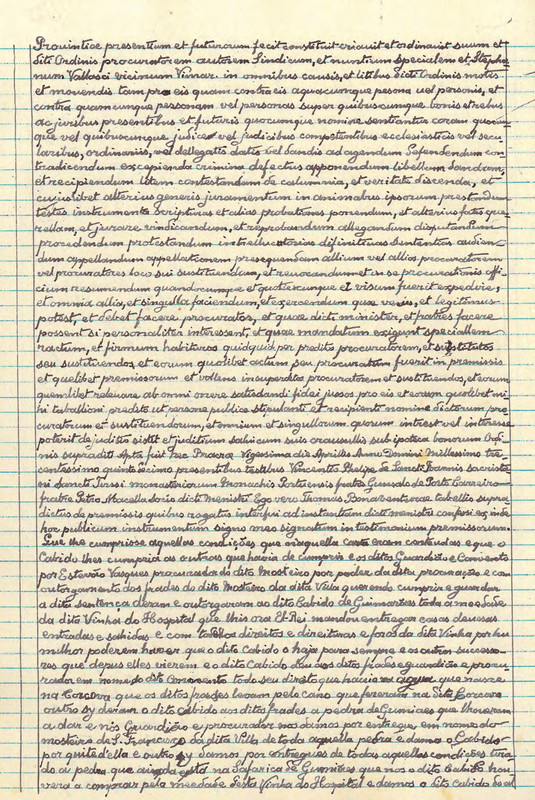 Provintiae presentium et futurorum fecit constituit criauit et ordinauit suum et
Siti Ordinis procuratorem autorem Sindicum, et nuntium specialem et, Stepha-
num Vallasci vicinum Vimar. in omnibus causis, et litibus Siti Ordinis motis
et movendis tam pro eis quam contra eis a quacumque pesona vel personis, et
contra quamcumque personam vel personas super quibuscumque bonis et rebus
ac juribus presentibus et futuris quocumque nomine sentiantur coram quocum-
que vel quibuscumque judice vel judicibus competentibus ecclesiasticis vel secu-
laribus, ordinariis, vel dellegatis datis vel Dandis ad agendum Defendendum con-
tradicendum excepienda crimina defectus apponendum libellum Dandum,
et recipiendum litem contestandum de calumnia, et veritate dicenda, et
cujuslibet alterius generis juramentum in animabus ipsorum prestandum
testes instrumenta scripturas et alias probationes ponendum, et alterius fatis que-
rellam, et jurare vindicandum, et reprobandum allegandum disputandum
procedendum protestandum intellucutorias difinitivas sententias audien-
dum appellandum appellationem presequendam allium vel allios procuratorem
vel procuratores loco sui sustituendum, et revocandum et in se procurationis offi-
cium resumendum quandocumque et quotiexcumque ei visum fuerit expedire,
et omnia allia, et singulla faciendum, et exercendum quae verus, et legitimus
potest et debet facere procurator, et quae dict. minister, et fratres facere
possent si personaliter interessent, et quae mandatum exigunt speciallem
ractum, et firmum habituros quidquid per predito procuratorem, et sustitutos
seu sustituendos, et eorum quolibet actum seu procuratum fuerit in premissis
et quelibet premissorum et vollens insuper dictos procuratorem et sustituendos, et eorum
quemlibet relevare ab omni onere satisdandi fidei jussos pro eis et eorum quolibet mi-
hi taballioni predito ut persone publice stipulanti et recipienti nomine dictorum pro-
curatorum et sustituendorum, et omnium et singullorum quorum intrest vel interesse
poterit de juditio sistit et juditum salvicum suis crausullis sub ipoteca bonorum Ordi-
nis supraditi Apta fuit hec Procura Vigesima die Aprillis Anno Domini Millessimo tre-
centessimo quinto decimo presentibus testibus Vincentis Phelipe de Sancti Joannis sacrista
ni Sancti Tirssi monasteriorum Monachis Portuensis fratre Gunsalo de Porto Carreiro
fratre Petro Macella socio dicti Menistri Ego vero Thomás Bonaventurae tabellio supra
dictus de premissis quibus rogatus interfui ad instantiam dicti menistri confeci ex inde
hoc publicum instrumentum signo meo signatum in testimonium premissorum.
Que lhe cumprisse aquellas condições que naquella carta eram contheudas e que o
Cabido lhes cumpriria as outras que havia de cumprir e os ditos Guardião e Convento
por Estevão Vasques procurador do dito Mosteiro por poder da dita procuração e com
outorgamento dos frades do dito Mosteiro da dita Villa querendo cumprir e guardar
a dita sentença deram e outorgaram ao dito Cabido de Guimarães toda a meadade
da dita Vinha do Hospital que lhis ora El Rei mandou entregar casas devesas
entradas e sahidas e com todolos direitos e direituras e foros da dita Vinha por hu
milhor poderem haver que o dito Cabido o haja para sempre e os outros successo-
res que depus elles vierem e o dito Cabido deu aos ditos frades e guardião e procu-
rador em nome do dito Convento todo seu direito que havia na agoa que nasce
na Corcova que os ditos frades levam pelo cano que fezeram na dita Corcova
outro sy deram o dito Cabido aos ditos frades a pedra de Gumiaes que lhe eram
a dar e nós Guardião e procurador nos damos por entregue em nome do
mosteiro de S. Francisco da dita Villa de toda aquella pedra e damos o Cabido
por quite d'ella e outro sy damos por entregues de todas aquellas condições tira-
do a pedra que ainda está na Safarica de Gumiaes que nos o dito Cabido hou
vera a comprar pela meadade desta Vinha do Hospital e damos o dito Cabido de al